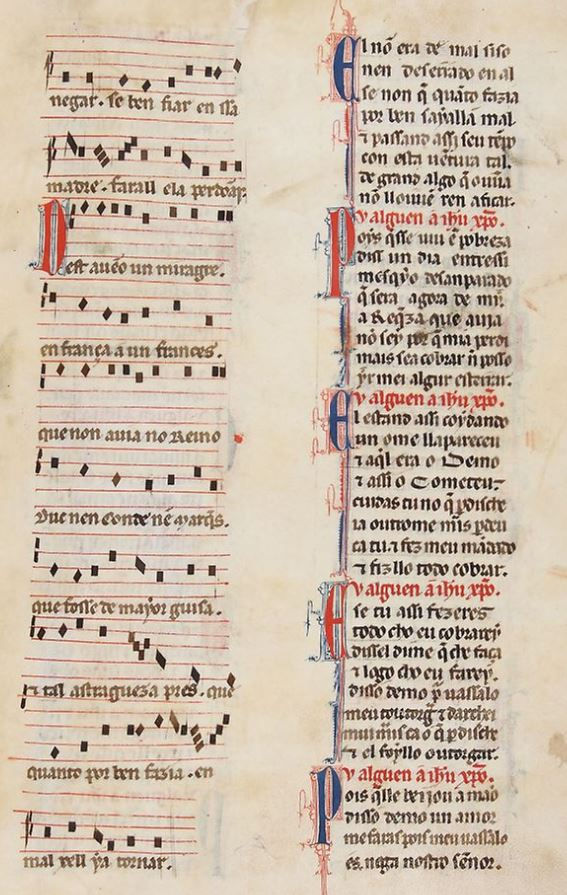 negar. se ben fiar en ssa
madre. farall ela perdõar.
Dest aueo un miragre.
en frança a un frances.
que non auia no Reino
Duc nen Conde nẽ marq̃s.
que fosse de mayor guisa.
⁊ tal astragueza pres. que
quanto por ben fazia. en
mal xell ya tornar.
El nõ era de mal siso
nen deserrado en al
se non q̃ quãto fazia
por ben sayalla mal.
⁊ passand assi seu tẽpo
con esta uẽtura tal.
de grand algo q̃ ouuia
nõ llouue ren aficar.
Sy alguen a ihũ xp̃o.
Poys q̃sse uiu ẽ pobreza
diss un dia entressi
mesq̃yo desanparado
q̃ sera agora de mi.
a Req̃za que auia
nõ sey por q̃ mia perdi
mais sea cobrar ñ posso
yr mei algur esterrar.
Sy alguen a ihũ xp̃o.
El estand assi coydando
un ome llapareceu
⁊ aq̃l era o Demo
⁊ assi o Cometeu.
cuidas tu no q̃ pdische
ta outrome
ca tu a fez meu mãdado
⁊ fizllo todo cobrar.
Sy alguen a ihũ xp̃o.
E se tu assi fezeres
todo cho eu cobrarey
dissel dime q̃ che faça
⁊ logo cho eu farey.
disso demo p̃ uassalo
meu tou torg̃ ⁊ darchei
mui mais ca o q̃ pdische
⁊ el foyllo outorgar.
Sy alguen a ihũ xp̃o.
Pois q̃lle beijou a mão
disso demo un amor
me faras pois meu uassalo
es. nega nostro señor.